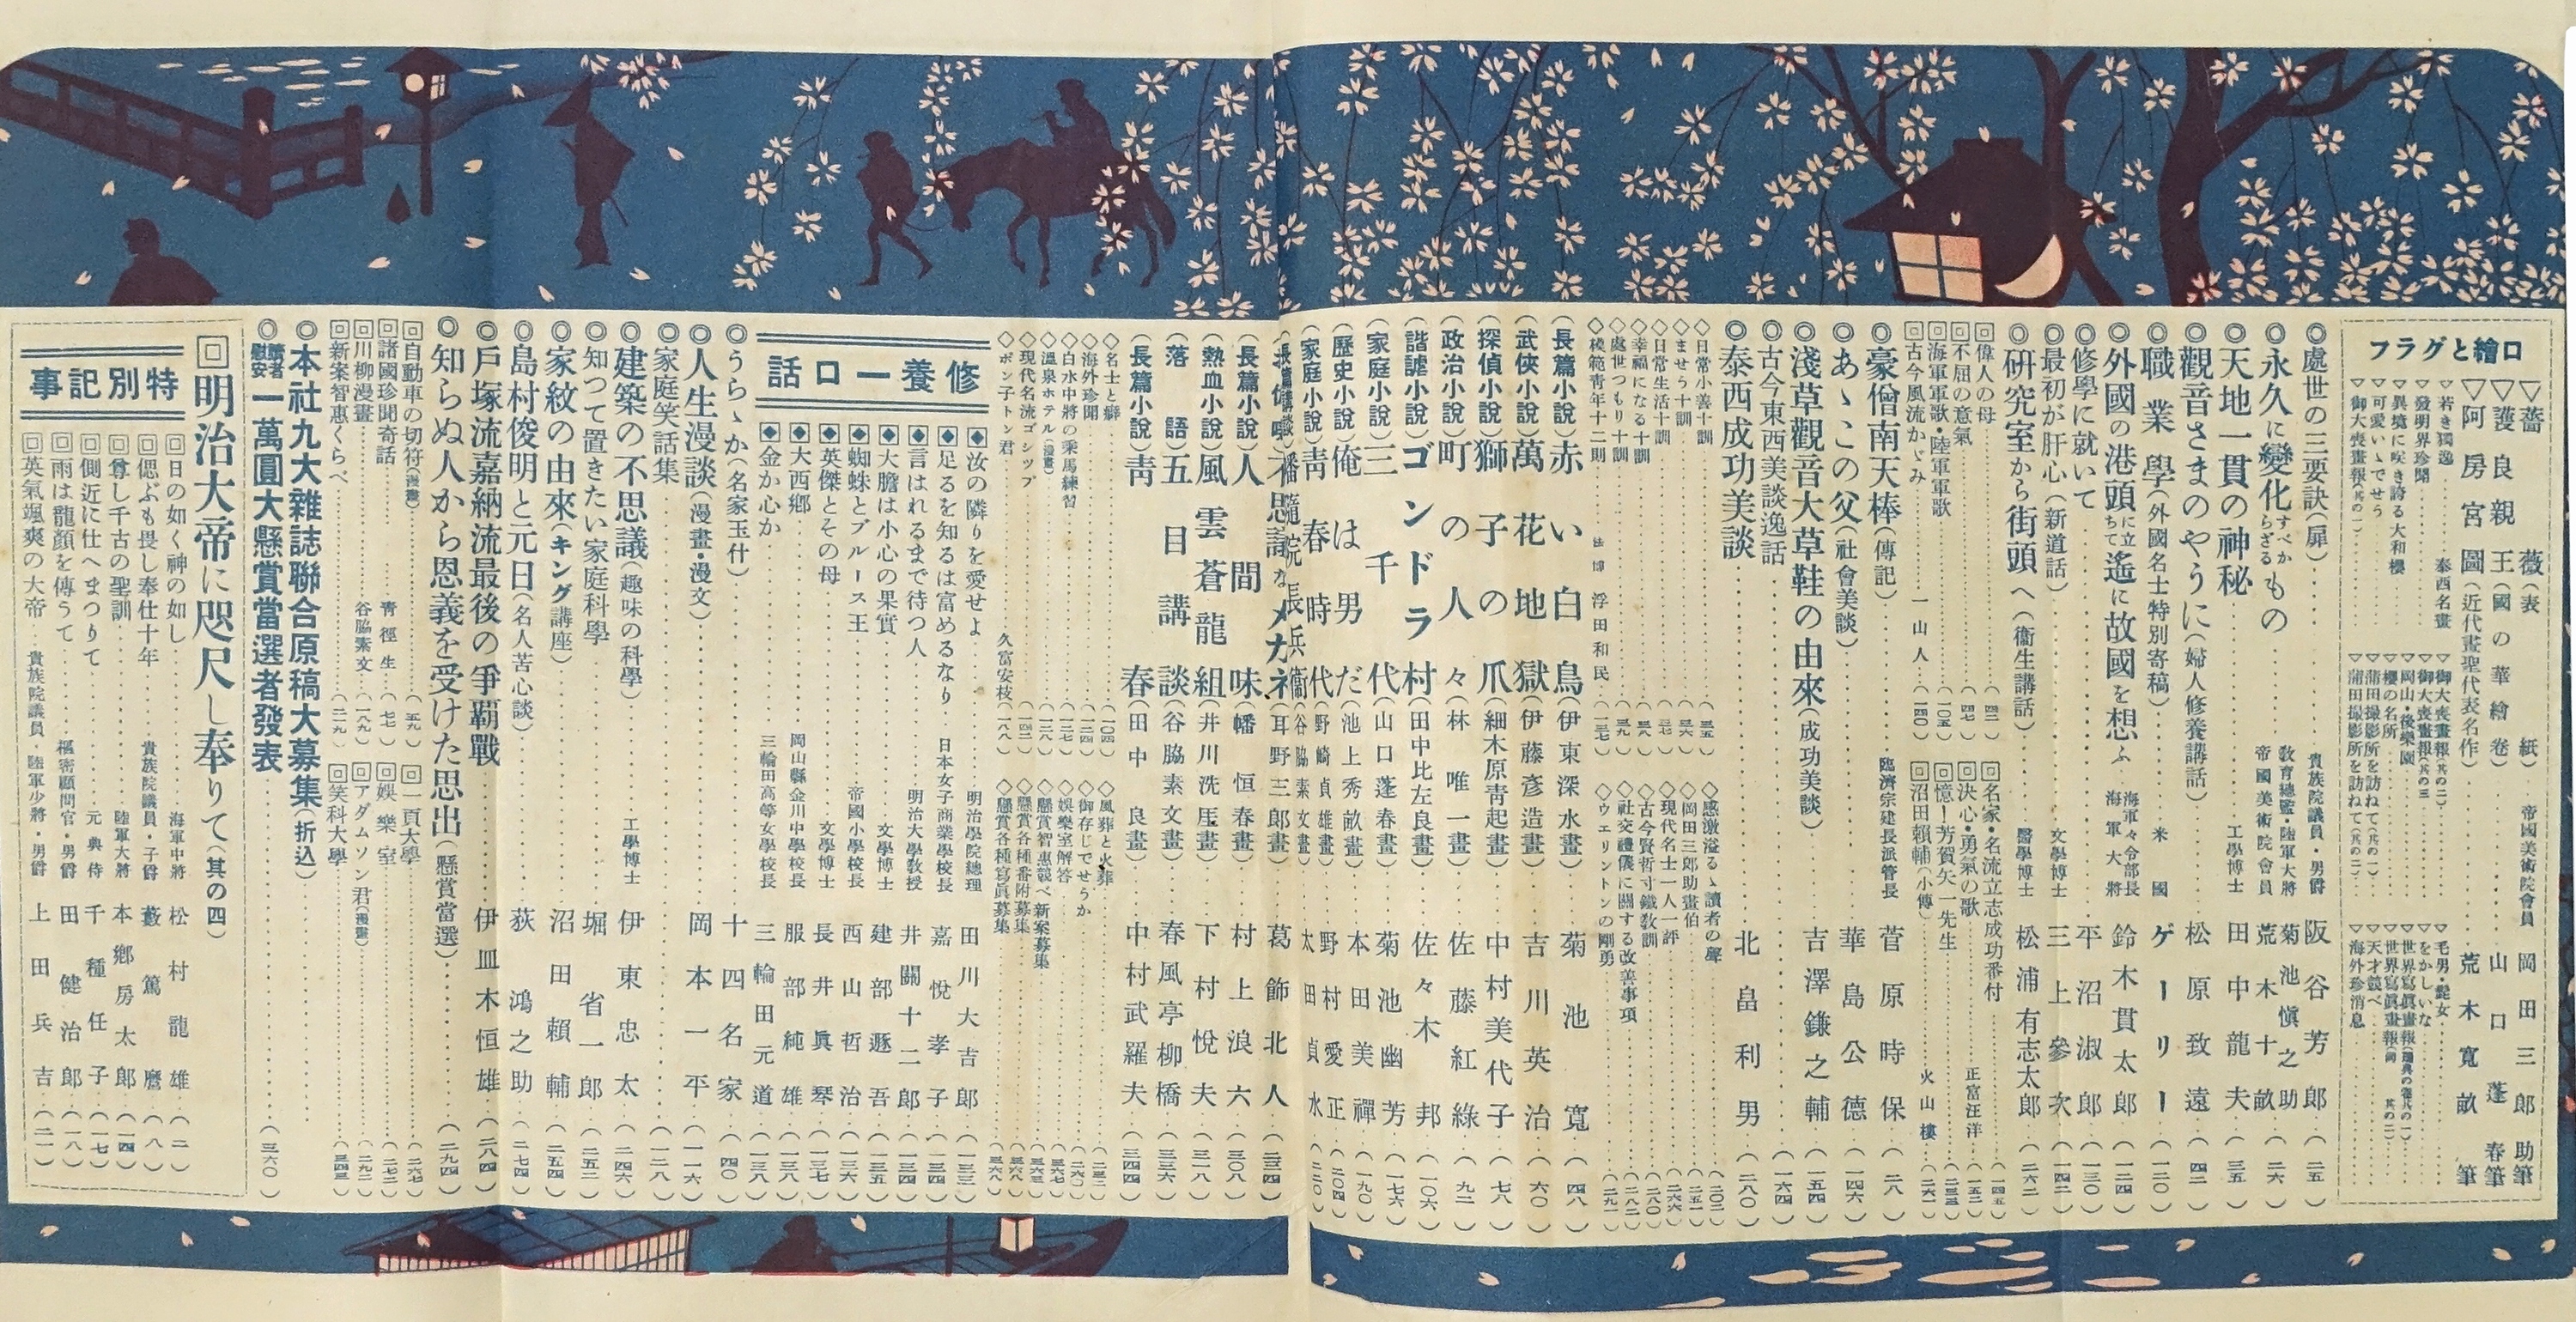 口繪とグラフ
▽薔薇(表紙)‥‥帝國美術院會員 岡田三郎助筆
▽護良親王(國の華繪卷)‥‥山口蓬春筆
▽阿房宮圖(近代畫聖代表名作)‥‥荒木寬畝筆
▽若き獨逸‥‥泰西名畫
▽發明界珍聞‥‥
▽異境に咲き誇る大和櫻
▽可愛いゝでせう
▽御大喪畫報(其の一)‥‥
▽御大喪畫報(其の二)‥‥
▽御大喪畫報(其の三)
▽岡山・後樂園
▽櫻の名所‥‥
▽蒲田撮影所を訪ねて(其の一)
▽蒲田撮影所を訪ねて(其の二)
▽毛男・髭女‥‥
▽をかしいな‥‥
▽世界寫眞畫報
▽世界寫眞畫報(同其の二)
▽天才競べ‥‥
▽海外珍消息‥‥
◎處世の三要訣(扉)‥‥貴族院議員・男爵 阪谷芳郎(二五)
◎永久に變化すべからざるもの‥‥教育總監・陸軍大將 菊池愼之助
帝國美術院會員 荒木十畝(二六)
◎天地一貫の神秘‥‥工學博士 田中龍夫(三五)
◎觀音さまのやうに(婦人修養講話)‥‥松原致遠(四二)
◎職業學(外國名士特別寄稿)‥‥米國 ゲーリー(一二〇)
◎外國の港頭に立ちて遙に故國を想ふ 海軍々令部長 海軍大將 鈴木貫太郎(一二四)
◎修學に就いて‥‥平沼淑郎(一三〇)
◎最初が肝心(新道話)‥‥文學博士 三上參次(一四二)
◎硏究室から街頭へ(衞生講話)‥‥醫學博士 松浦有志太郎(二六二)
回偉人の母‥‥(四二)
回不屈の意氣‥‥(四七)
回海軍軍歌・陸軍軍歌‥‥(一〇五)
回古今風流かゞみ‥‥一山人‥(一四〇)
回名家・名流立志成功番付‥‥(一四五)
回決心・勇氣の歌‥‥正富汪洋(一五二)
回憶!芳賀矢一先生‥‥(二三三)
回沼田賴輔(小傳)‥‥火山樓(二六一)
◎豪僧南天棒(傳記)‥‥臨濟宗建長派管長 菅原時保(二八)
◎あゝこの父(社會美談)‥‥華島公德(一四六)
◎淺草觀音大草鞋の由來(成功美談)‥‥吉澤鎌之輔(一五四)
◎古今東西美談逸話‥‥(一六四)
◎泰西成功美談‥‥北畠利男(二八〇)
◇日常小善十訓‥‥(三五)
◇ませう十訓‥‥(三六)
◇日常生活十訓‥‥(三七)
◇幸福になる十訓‥‥(三八)
◇處世つもり十訓‥‥(三九)
◇模範靑年十二則‥‥法博 浮田和民‥(一三七)
◇感激溢るゝ讀者の聲‥‥(二〇二)
◇岡田三郎助畫伯‥‥(二五一)
◇現代名士一人一評‥‥(二六六)
◇古今賢哲寸鐵敎訓‥‥(二八〇)
◇社交禮儀に關する改善事項‥‥(二八二)
◇ウエリントンの剛勇‥‥(二九一)
(長篇小說)赤い白鳥(伊東深水畫)‥‥菊池寬(四八)
(武俠小說)萬花地獄(伊藤彥造畫)‥‥吉川英治(六〇)
(探偵小說)獅子の爪(細木原靑起畫)‥‥中村美代子(七八)
(政治小說)町の人々(林唯一畫)‥‥佐藤紅綠(九二)
(諧謔小說)ゴンドラ村(田中比左良畫)‥‥佐々木邦(一〇六)
(家庭小說)三千代(山口蓬春畫)‥‥菊池幽芳(一七六)
(歷史小說)俺は男だ(池上秀畝畫)‥‥本田美禪(一九〇)
(家庭小說)靑春時代(野崎貞雄畫)‥‥野村愛正(二〇四)
(長篇講談)幡隨院長兵衞(谷脇素文畫)‥‥太田貞水(二二〇)
不思議なメガネ(耳野三郎畫)‥‥葛飾北人(二三四)
(長篇小說)人間味(幡恒春畫)‥‥村上浪六(三〇八)
(熱血小說)風雲蒼龍組(井川洗厓畫)‥‥下村悅夫(三一八)
(落語)五目講談(谷脇素文畫)‥‥春風亭柳橋(三三六)
(長篇小說)靑春(田中良畫)‥‥中村武羅夫(三四四)
◇名士と癖‥‥(一〇四)
◇海外珍聞‥‥(一二四)
◇白水中將の乘馬練習‥‥(一二七)
◇溫泉ホテル(漫畫)‥‥(一三八)
◇現代名流ゴシップ‥‥(一四二)
◇ポン子トン君‥‥久富安枝‥(一八八)
◇風葬と火葬‥‥(二三二)
◇御存じでせうか‥‥(二六〇)
◇娛樂室解答‥‥
◇懸賞智惠競べ新案募集‥‥
◇懸賞各種番附募集‥‥
◇懸賞各種寫眞募集‥‥
修養一口話
◆汝の隣りを愛せよ‥‥明治學院總理 田川大吉郎(一三三)
◆足るを知るは富めるなり‥日本女子商業學校長 嘉悅孝子(一三四)
◆言はれるまで待つ人‥‥明治大學敎授 井關十二郎(一三四)
◆大膽は小心の果實‥‥文學博士 建部遯吾(一三五)
◆蜘蛛とブルース王‥‥帝國小學校長 西山哲治(一三六)
◆英傑とその母‥‥文學博士 長井眞琴(一三七)
◆大西鄉‥‥岡山縣金川中學校長 服部純雄(一三八)
◆金か心か‥‥三輪田高等女學校長 三輪田元道(一三八)
◎うらゝか(名家玉什)‥‥十四名家(四〇)
◎人生漫談(漫畫・漫文)‥‥岡本一平(一一六)
◎家庭笑話集‥‥(一二八)
◎建築の不思議(趣味の科學)‥‥工學博士 伊東忠太(二四六)
◎知つて置きたい家庭科學‥‥堀省一郎(二五二)
◎家紋の由來(キング講座)‥‥沼田賴輔(二五四)
◎島村俊明と元日(名人苦心談)‥‥荻鴻之助(二七四)
◎戶塚流嘉納流最後の爭霸戰‥‥伊皿木恒雄(二八四)
◎知らぬ人から恩義を受けた思出(懸賞當選)‥‥(二九四)
回自動車の切符(漫畫)‥‥(五九)
回諸國珍聞奇話‥‥靑徑生‥(七七)
回川柳漫畫‥‥谷脇素文‥(一八九)
回新案智惠くらべ‥‥(二一九)
回一頁大學‥‥(二六七)
回娛樂室‥‥(二七二)
回アダムソン君(漫畫)‥‥(二九二)
回笑科大學‥‥(三四三)
◎本社九大雜誌聯合原稿大募集(折込)‥‥
◎讀者慰安一萬圓大懸賞當選者發表‥‥(三六〇)
回明治大帝に咫尺し奉りて(其の四)
特別記事
回日の如く神の如し‥‥海軍中將 松村龍雄(二)
回偲ぶも畏し奉仕十年‥‥貴族院議員・子爵 藪篤麿(八)
回尊し千古の聖訓‥‥陸軍大將 本鄕房太郎(一四)
回側近に仕へまつりて‥‥元典侍 千種任子(一七)
回雨は龍顏を傳うて‥‥樞密顧問官・男爵 田健治郎(一八)
回英氣颯爽の大帝‥‥貴族院議員・陸軍少將・男爵 上田兵吉(二一)